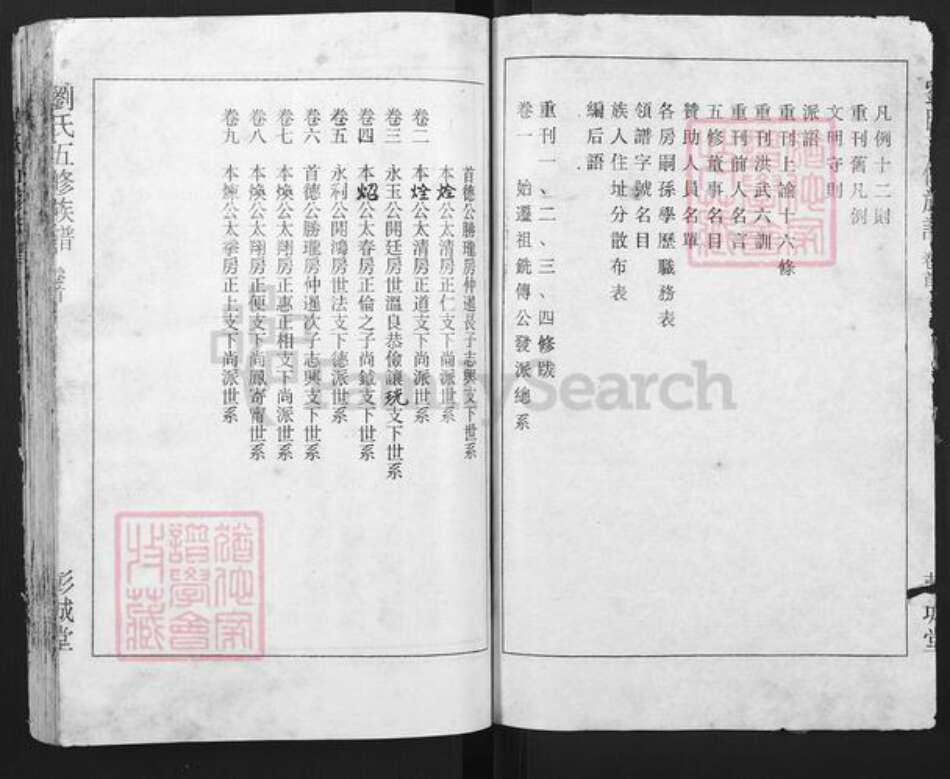 凡例十二則
重刊舊凡例
文明守則
派語
重刊上諭十六條
重刊洪武六訓
重刊前人名言
五修董事名目
贊助人員名單
各房嗣孫學歷職務表
領譜字號名目
族人住址分散布表
編后語
重刊一、二、三、四修跋
卷一 始遷祖銑傳公發派總系
首德公勝瓏房仲暹長子志興支下世系
本烇公太清房正仁支下尚派世系
卷二 本烇公太清房正道支下尚派世系
卷三 永玉公開廷房世溫良恭儉讓玩支下世系
卷四 本炤公太春房正倫之子尚鉞支下世系
卷五 永利公開鴻房世法支下德派世系
卷六 首德公勝瓏房仲暹次子志興支下世系
卷七 本煥公太翔房正惠正相支下尚派世系
卷八 本煥公太翔房正便支下尚鳳寄甯世系
卷九 本煉公太拳房正上支下尚派世系
劉氏五修族譜 卷首
彭城堂
FamilySearch